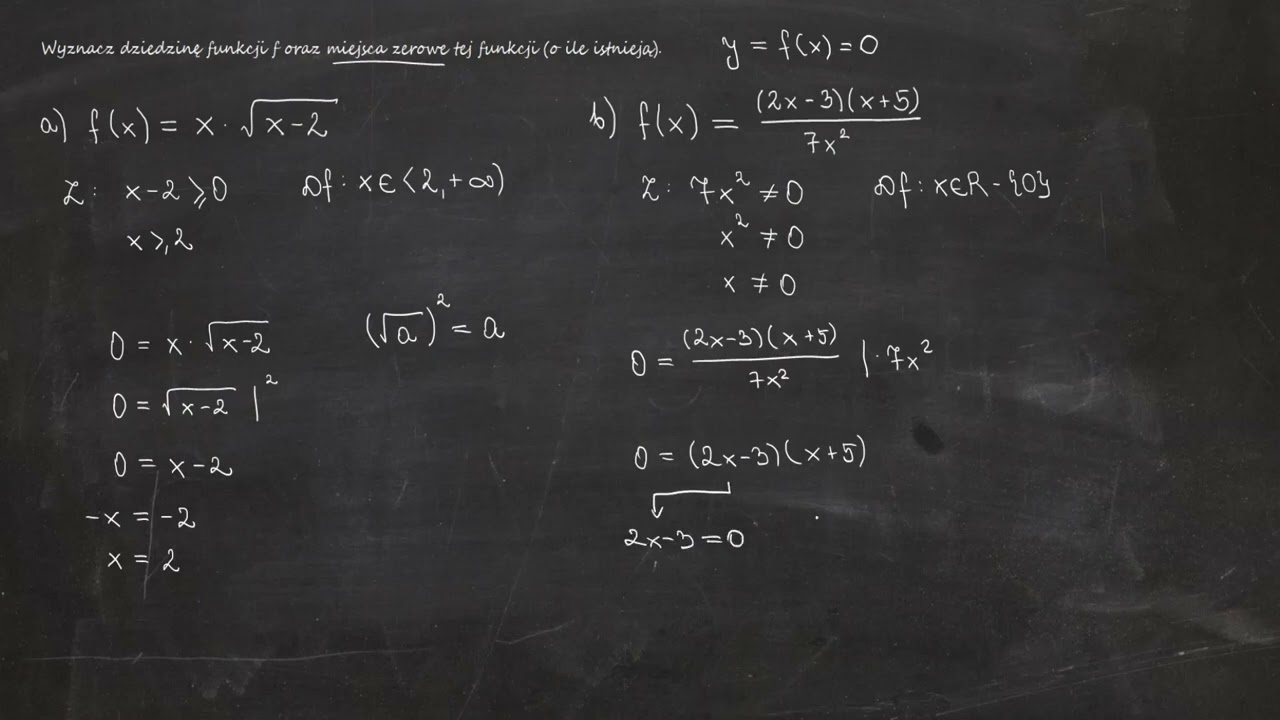 Wyznacz dziedzinę funkcji f oraz miejsca zerowe tej funkcji (o ile istnieją).
y = f(x) = 0
a) f(x) = x · √(x-2)
Z: x-2 ⩾ 0
Df: x∈<2,+∞)
x ⩾ 2
0 = x · √(x-2)
(√a)² = a
0 = √(x-2) |²
0 = x-2
-x = -2
x = 2
b) f(x) = (2x-3)(x+5) / 7x²
Z: 7x² ≠ 0
Df: x∈R-{0}
x² ≠ 0
x ≠ 0
0 = (2x-3)(x+5) / 7x² | · 7x²
0 = (2x-3)(x+5)
2x-3 = 0